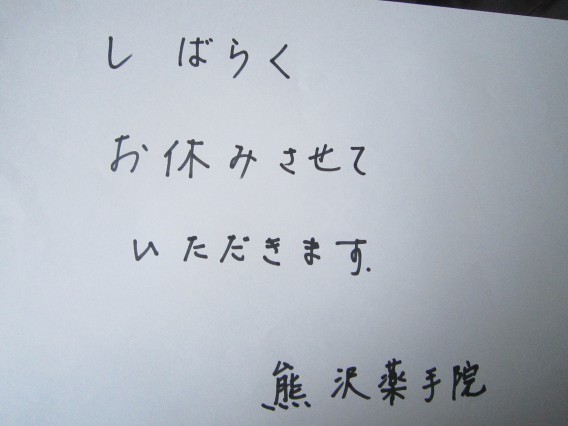 しばらく
お休みさせて
いただきます.
熊沢薬手院